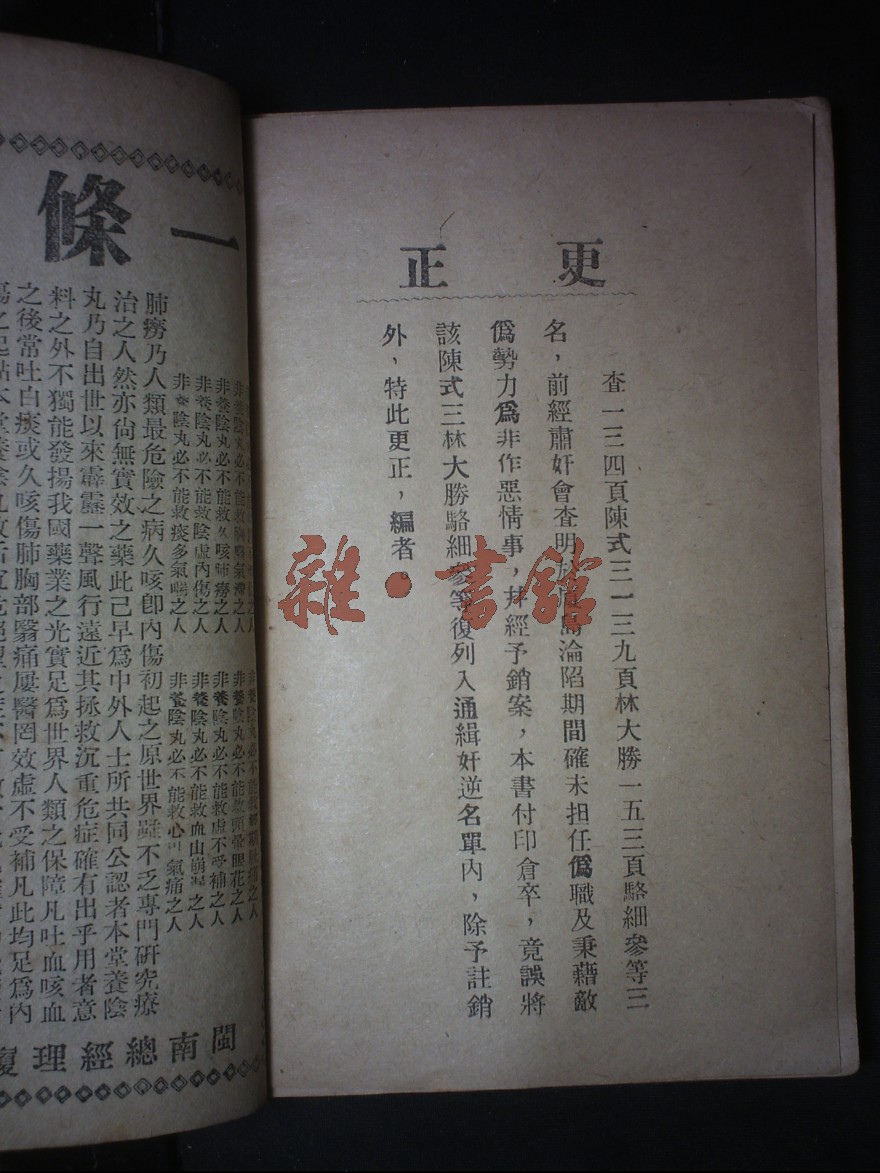 更正
查一三四頁陳式三一三九頁林大勝一五三頁駱細參等三
名，前經肅奸會查明於廈島淪陷期間確未担任偽職及秉藉敵
偽勢力為非作惡情事，幷經予銷案，本書付印倉卒，竟誤將
該陳式三林大勝駱細參等復列入通緝奸逆名單內，除予註銷
外，特此更正，編者。
雜·書館
一條
非養陰丸必不能救久咳肺癆之人
非養陰丸必不能救陰虛內傷之人
非養陰丸必不能救痰多氣喘之人
非養陰丸必不能救頭暈眼花之人
非養陰丸必不能救虛不受補之人
非養陰丸必不能救血山崩漏之人
非養陰丸必不能救心氣痛之人
肺癆乃人類最危險之病久咳卽內傷初起之原世界雖不乏專門研究療
治之人然亦尙無實效之藥此己早為中外人士所共同公認者本堂養陰
丸乃自出世以來霹靂一聲風行遠近其拯救沉重危症確有出乎用者意
料之外不獨能發揚我國藥業之光實足為世界人類之保障凡吐血咳血
之後常吐白痰或久咳傷肺胸部翳痛屢醫罔效虛不受補凡此均足為內
傷之起點本堂養陰丸
閩南總經理廈